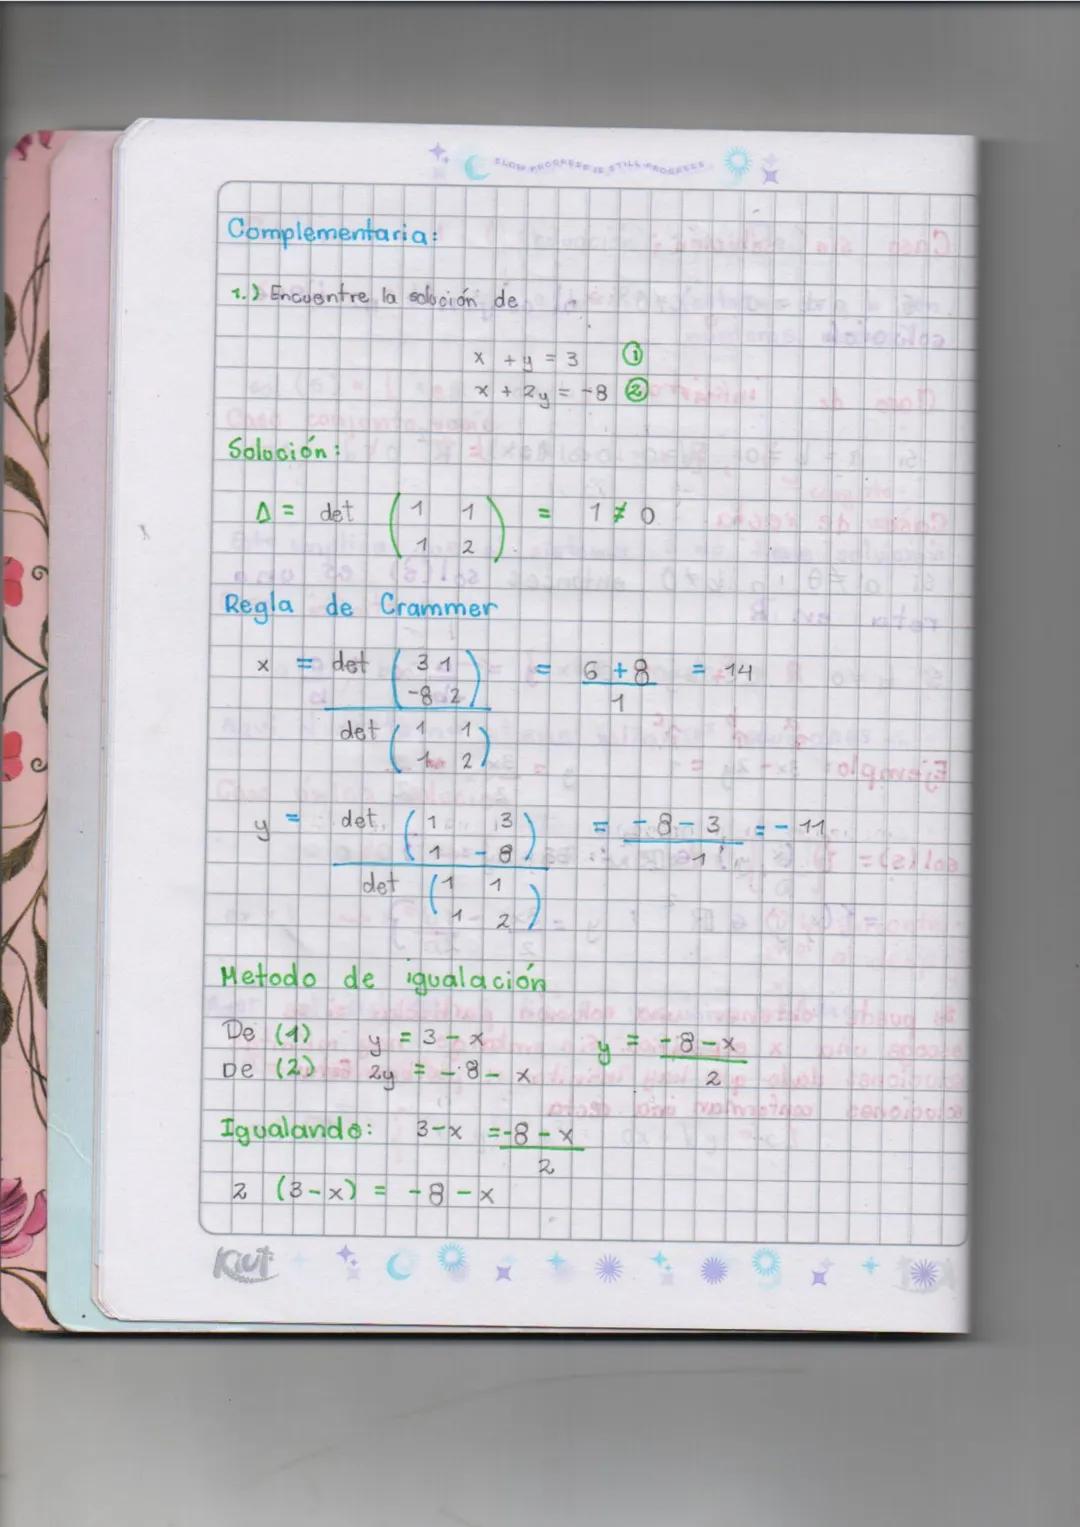 SLOW PROGRESS IS STILL PROGRESS
Complementaria:
1.) Encuentre la solución de
x + y = 3 ①
x + 2y = -8 ②
Solución:
Δ = det ( 1 1 ) = 1 ≠ 0
1 2
Regla de Crammer
x = det ( 3 1 ) = 6 + 8 = 14
-8 2 1
det ( 1 1 )
1 2
y = det. ( 1 3 ) = - 8 - 3 = - 11
1 - 8 1
det ( 1 1 )
1 2
Metodo de igualación
De (1) y = 3 - x y = - 8 - x
De (2) 2y = - 8 - x 2
Igualando: 3-x = -8 - x
2
2 (3-x) = - 8 - x
Kiut